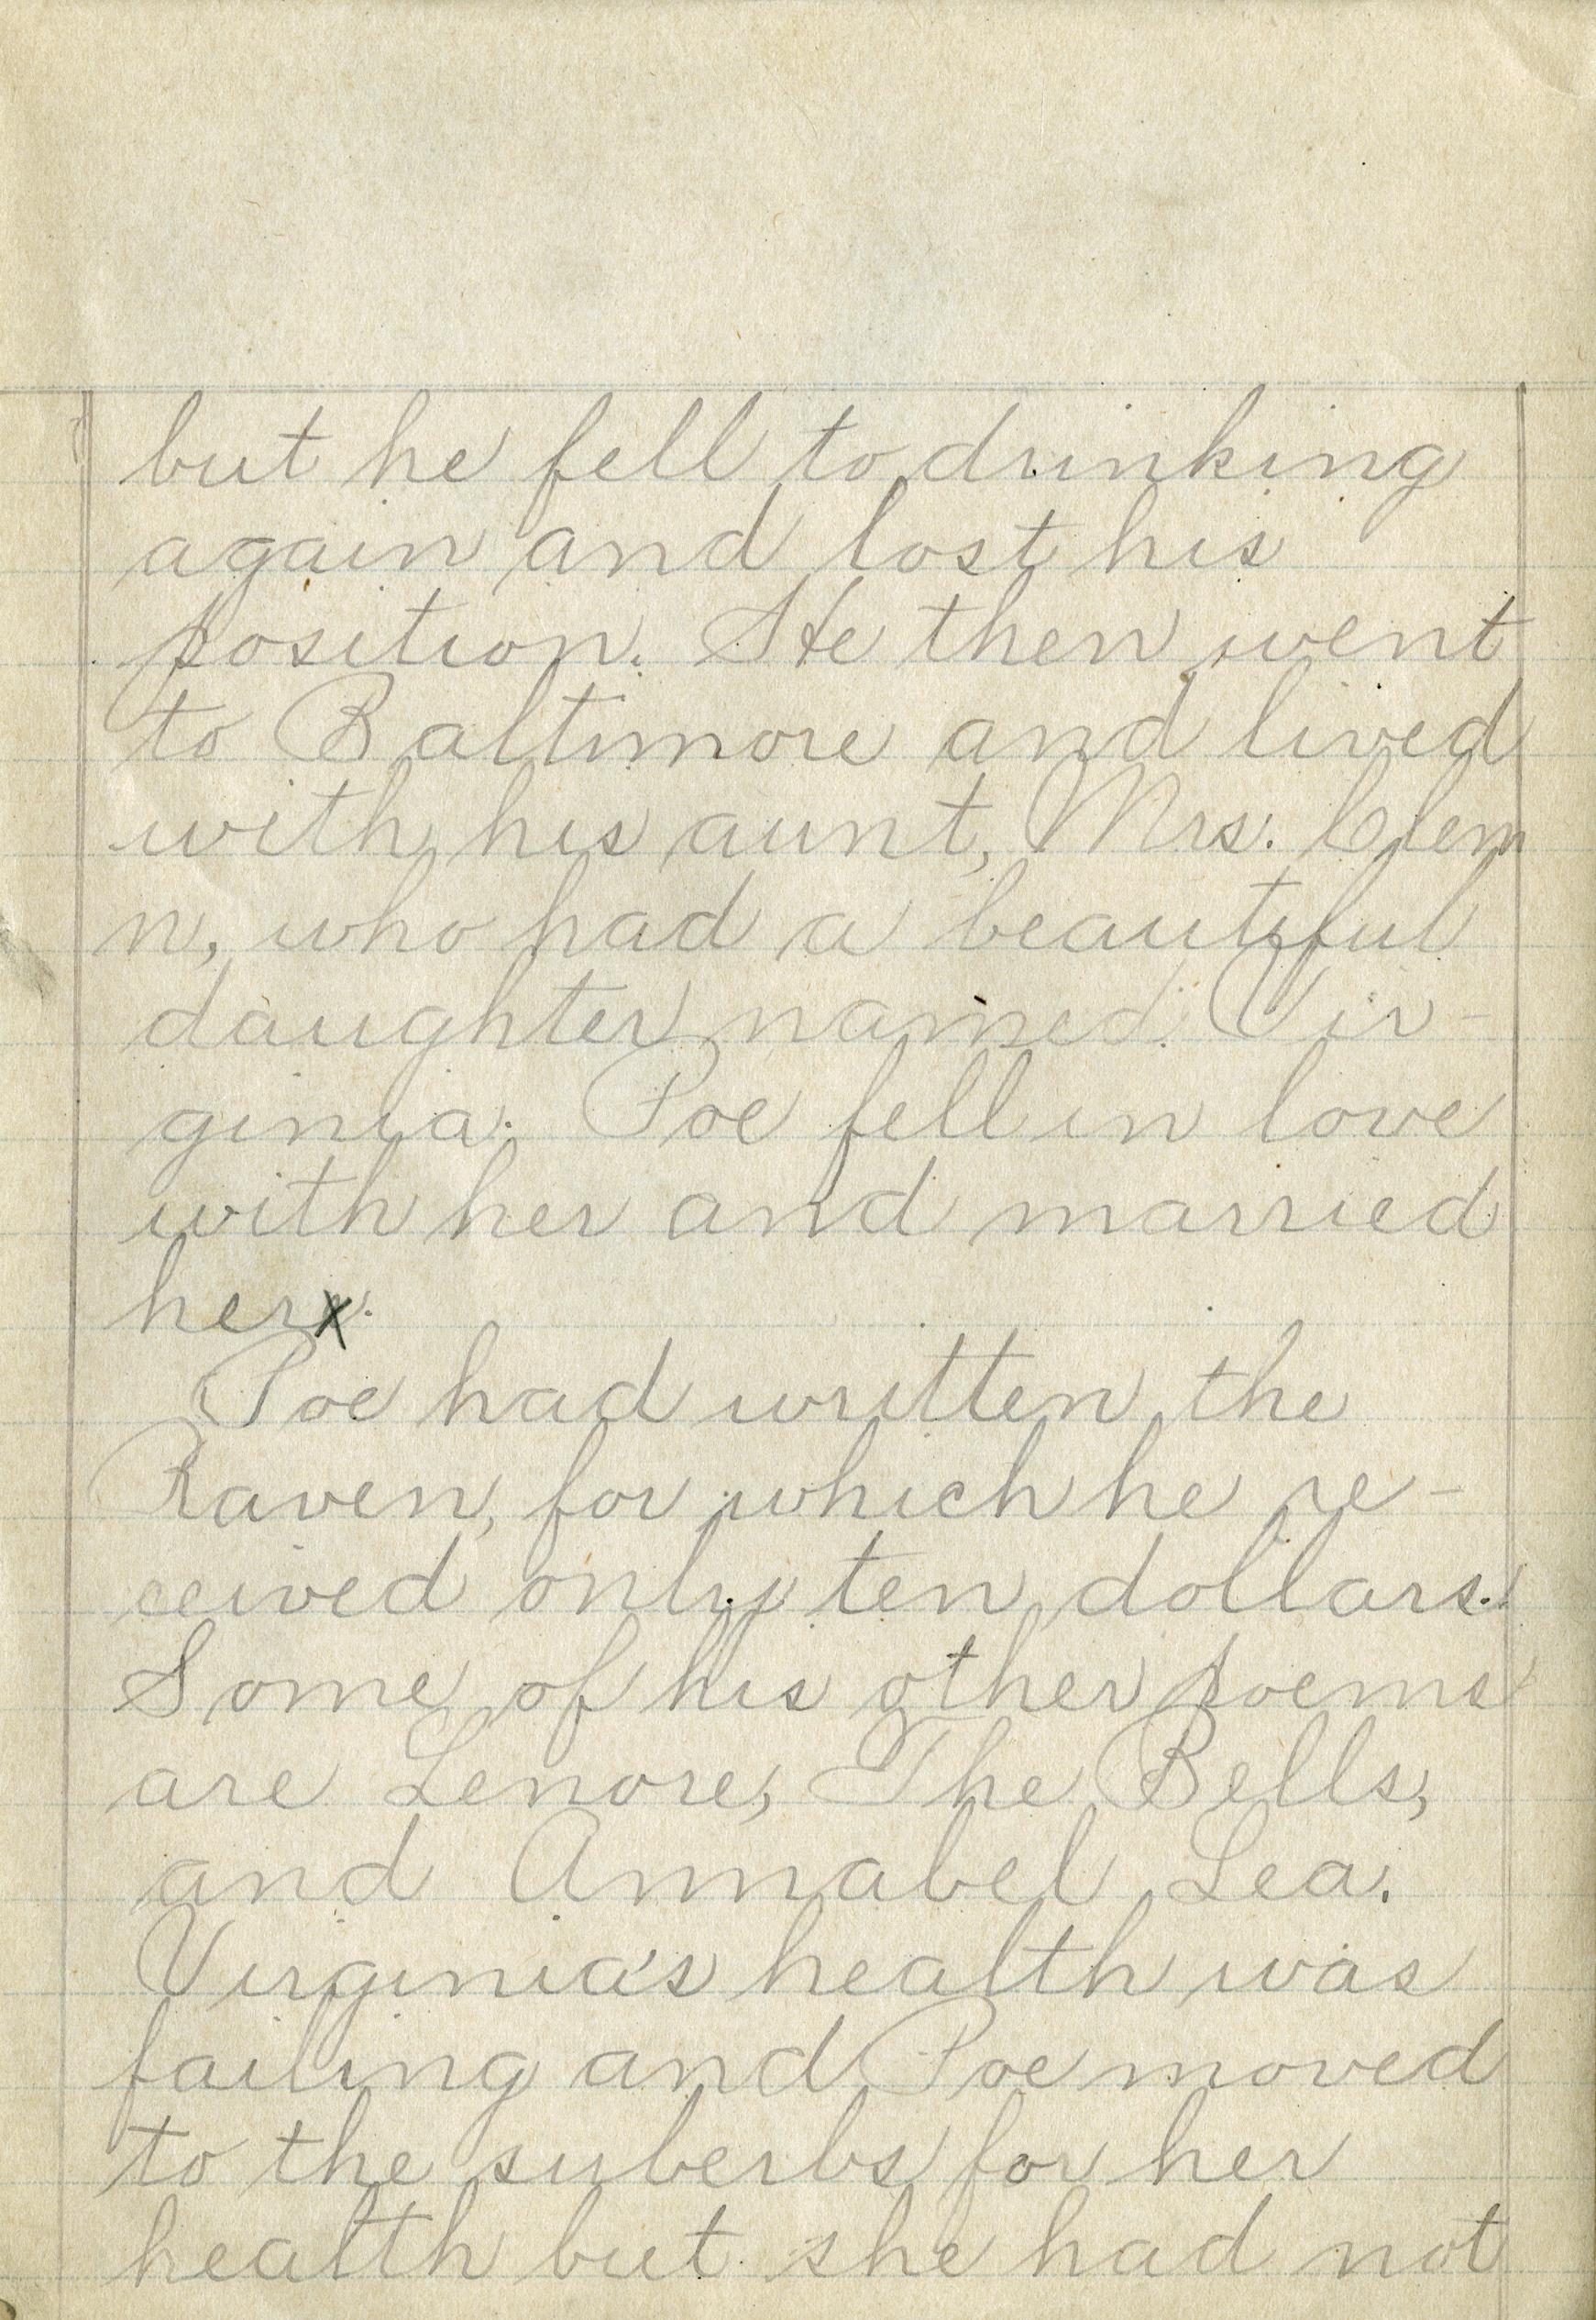 but he fell to drinking
again and lost his
position. He then went
to Baltimore and lived
with his aunt, Mrs. Clem
n, who had a beautiful
daughter named Vir-
ginia. Poe fell in love
with her and married
her.
Poe had written the
Raven, for which he re-
ceived only ten dollars.
Some of his other poems
are Lenore, The Bells,
and Annabel Lea.
Virginia's health was
failing and Poe moved
to the suberbs for her
health but she had not